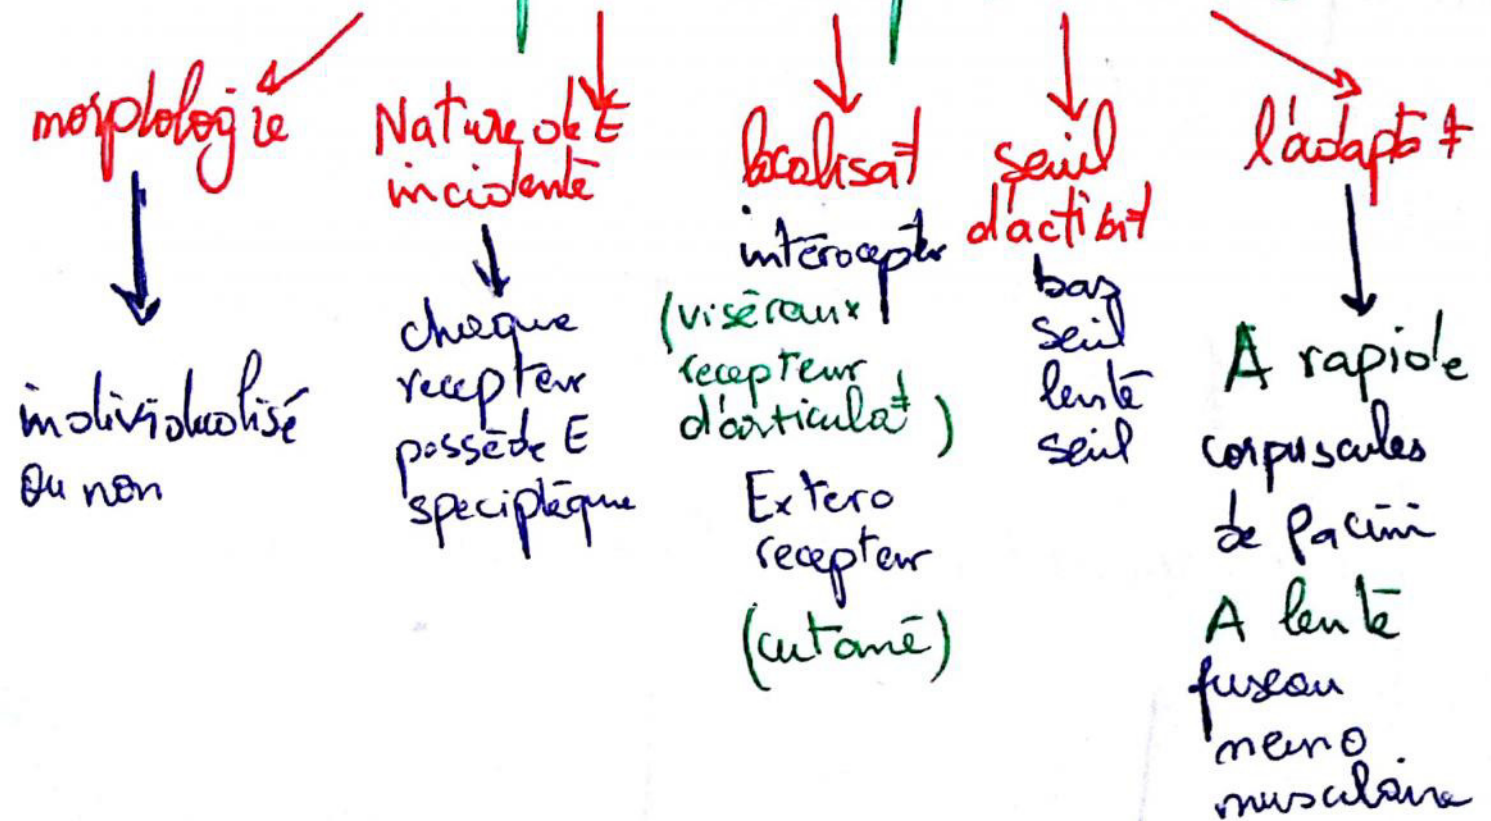 morphologie
individualisé
ou non
Nature de E
incidente
chaque
recepteur
possède E
specifique
localisat≠
intérocepter
(viséraux
recepteur
d'articulat≠)
Extero
recepteur
(cutané)
seuil
d'activat
bas
seuil
lente
seuil
l'adapt≠
A rapide
corpuscules
de Pacini
A lente
fuseau
neuro
musculaire